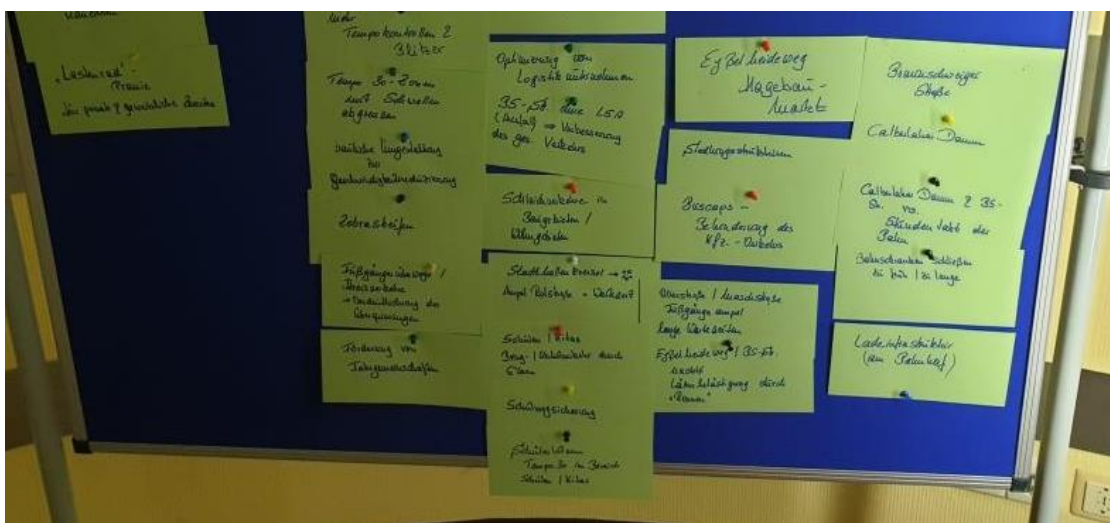 "Lastenrad"-
Prämie
für private & gewerbliche Zwecke
mehr
Tempokontrollen &
Blitzer
Tempo 30-Zonen
mit Schwellen
abgrenzen
bauliche Umgestaltung
zur
Geschwindigkeitsreduzierung
Zebrastreifen
Fußgängerüberwege /
→ der
Überquerungen
Förderung von
Fahrgemeinschaften
Optimierung von
Logistikunternehmen
35-
(Ausfall) ⇒ Verbesserung
des ges. Verkehrs
Schleichverkehre in
Baugebieten /
Stadthallenkreisel →
Ampel
Schulen / Kitas
Bring- / durch
Eltern
Schulwegsicherung
Tempo 30 im Bereich
Schulen / Kitas
Eyßelheideweg
Hagebau-
markt
Siedlungsstrukturen
Buscaps -
Behinderung des
Kfz.-Verkehrs
Fußgängerampel
lange Wartezeiten
Eyßelheideweg / 35-
Lärmbelästigung durch
"Rennen"
Braunschweiger
Straße
Calberlaher Damm
Calberlaher Damm & 35-
Stundentakt der
Bahn
Bahnschranken schließen
zu früh / zu lange
Ladeinfrastruktur
(am Bahnhof)